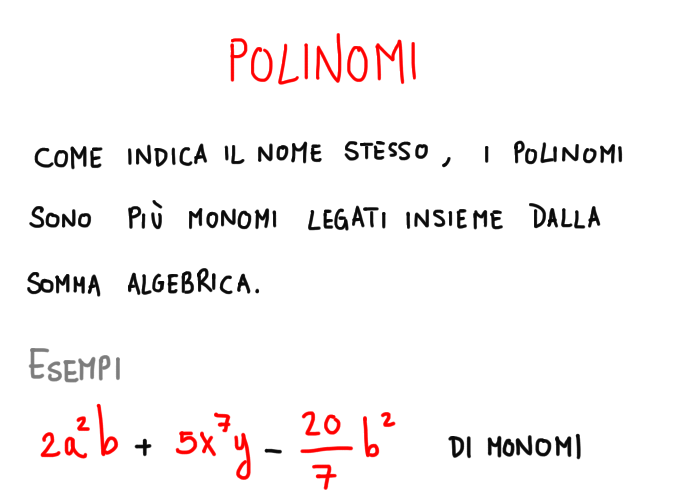 POLINOMI
COME INDICA IL NOME STESSO, I POLINOMI
SONO PIÙ MONOMI LEGATI INSIEME DALLA
SOMMA ALGEBRICA.
ESEMPI
2a²b + 5x⁷y - 20/7 b² DI MONOMI